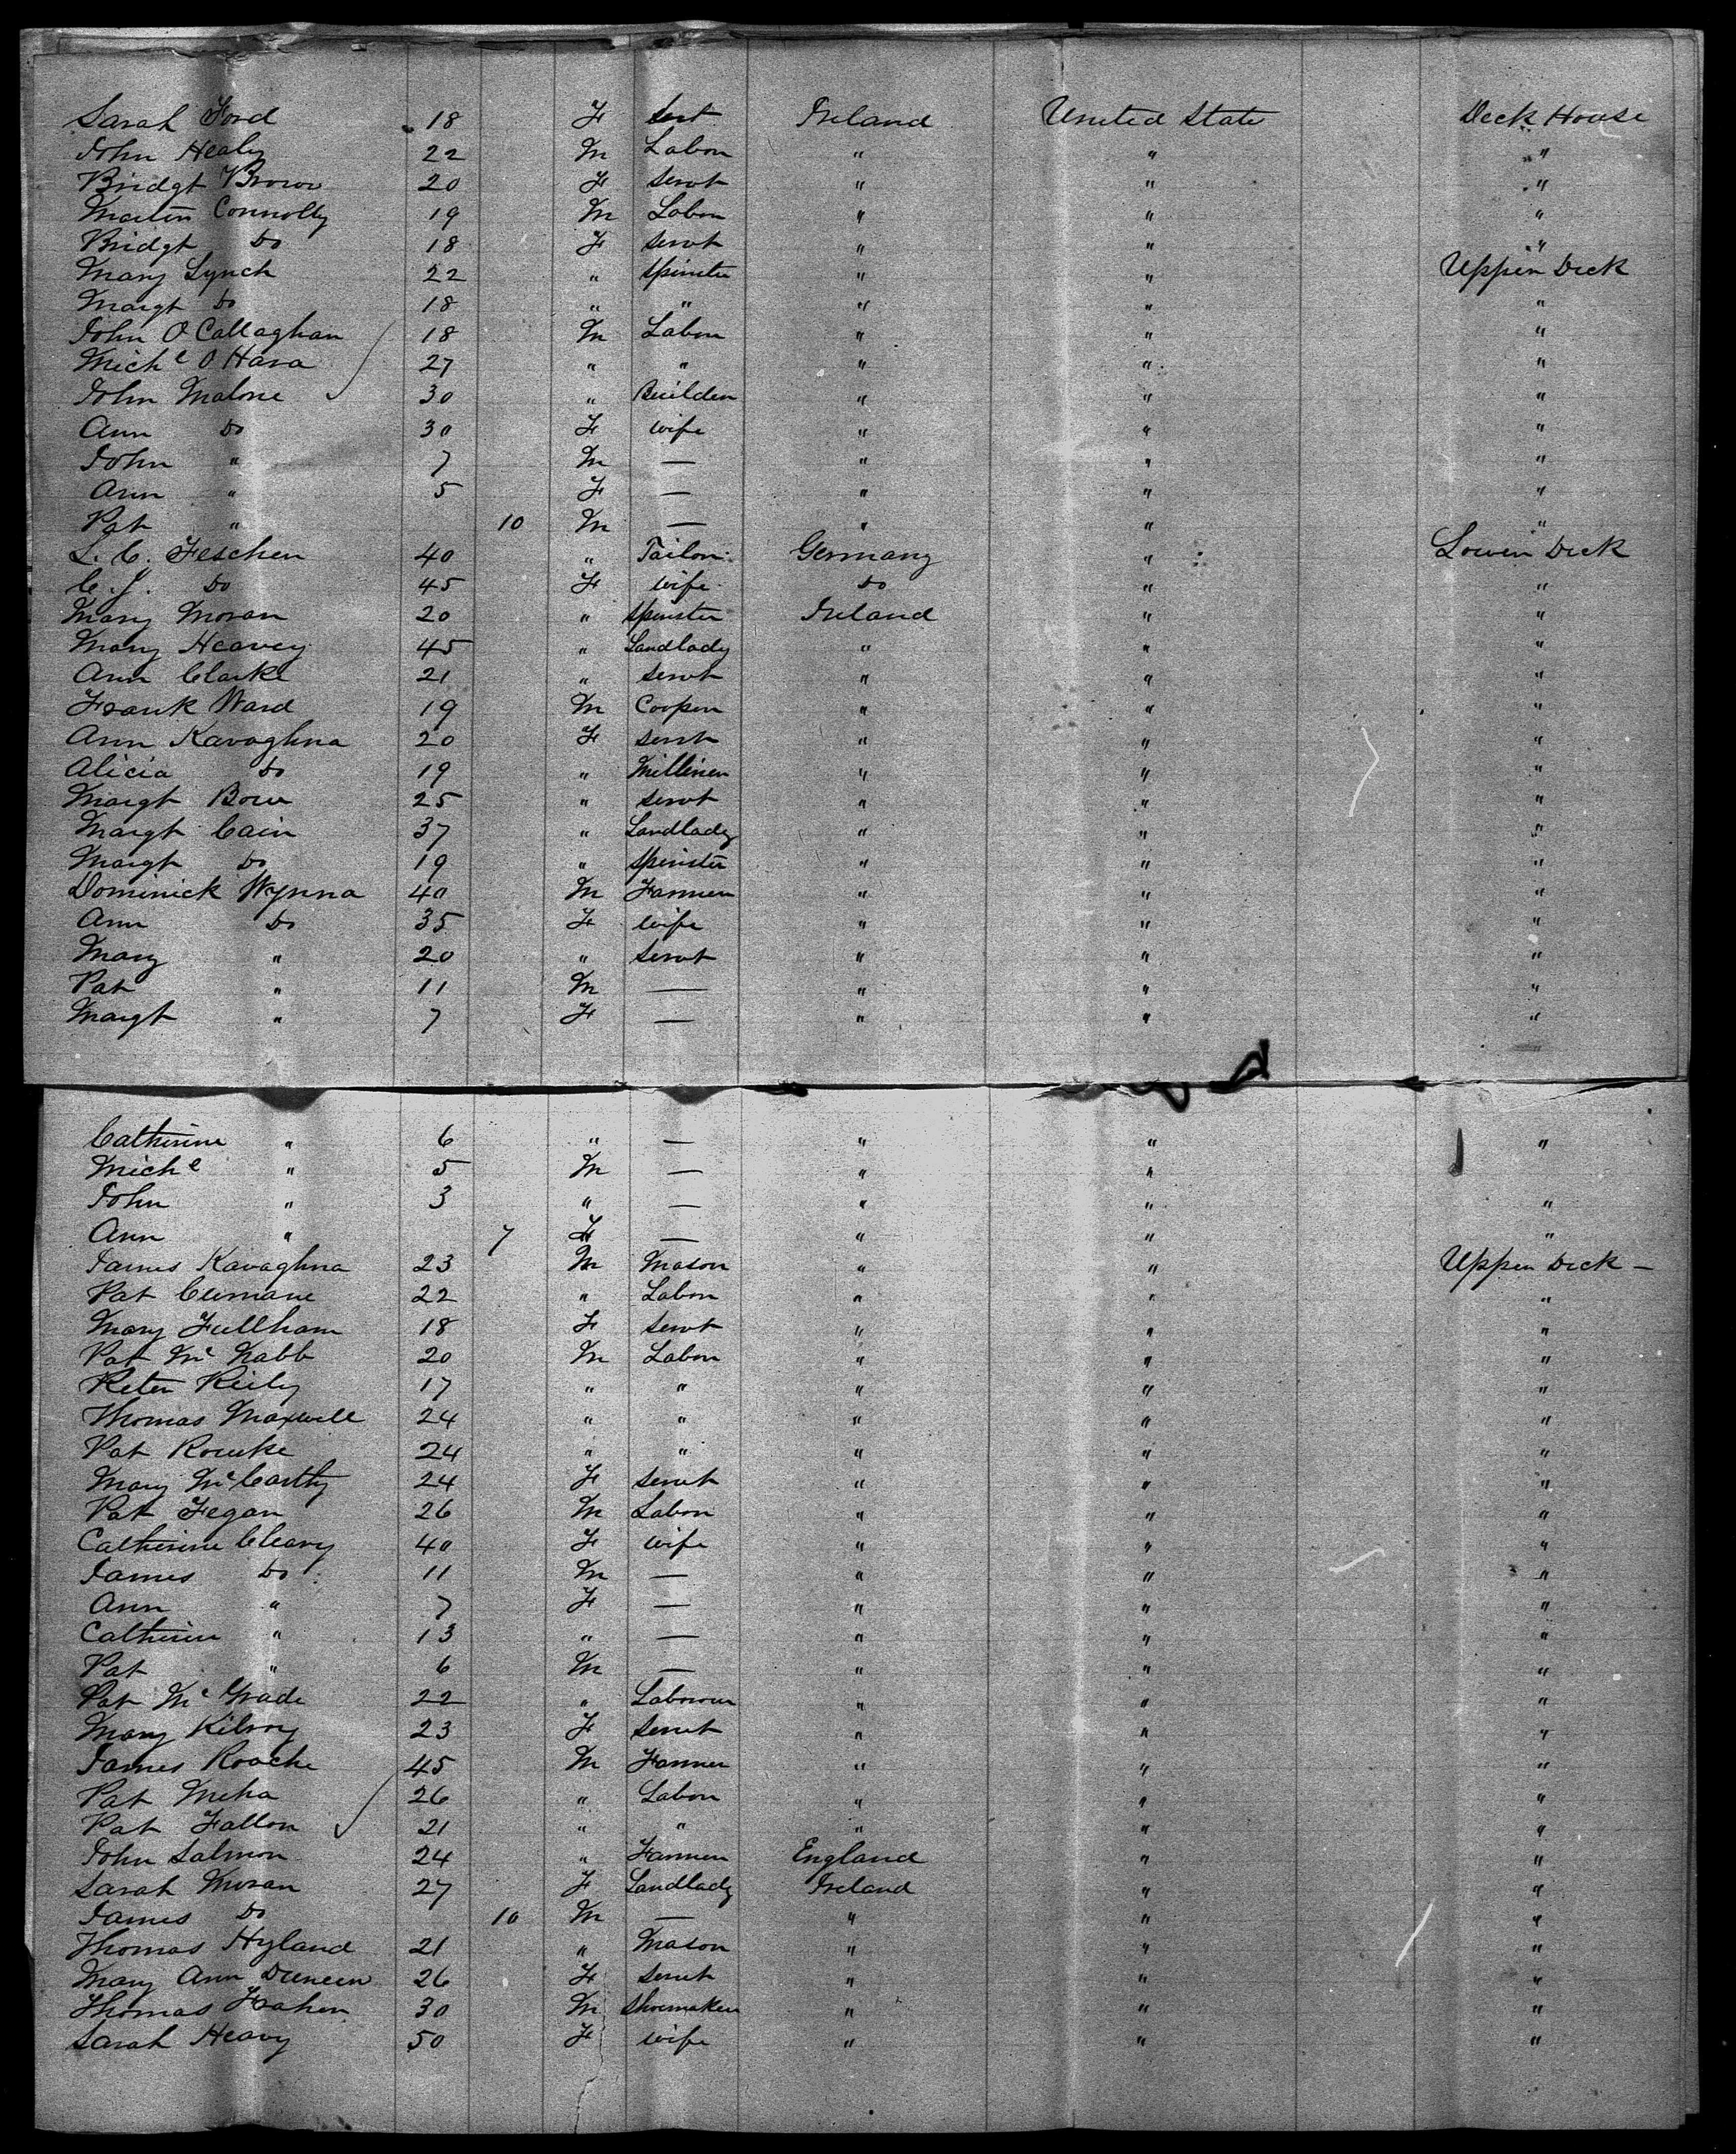 Sarah Ford 18 F Sert Ireland United State Deck House
John Healy 22 M Labor " " "
Bridgt Brown 20 F Servt " " "
Martin Connolly 19 M Labor " " "
Bridgt Do 18 F Servt " " "
Mary Lynch 22 " Spinster " " Upper Deck
Margt Do 18 " " " " "
John O Callaghan 18 M Labor " " "
Michl O Hara 27 " " " " "
John Malone 30 " Builder " " "
Ann Do 30 F Wife " " "
John " 7 M — " " "
Ann " 5 F — " " "
Pat " 10 M — " " "
L. C. Feschen 40 " Tailor Germany " Lower Deck
C. J. Do 45 F Wife Do " "
Mary Moran 20 " Spinster Ireland " "
Mary Heavey 45 " Landlady " " "
Ann Clarke 21 " Servt " " "
Frank Ward 19 M Cooper " " "
Ann Kavaghna 20 F Servt " " "
Alicia Do 19 " Milliner " " "
Margt Bow 25 " Servt " " "
Margt Cain 37 " Landlady " " "
Margt Do 19 " Spinster " " "
Dominick Wynna 40 M Farmer " " "
Ann Do 35 F Wife " " "
Mary " 20 " Servt " " "
Pat " 11 M — " " "
Margt " 7 F — " " "
Catherine " 6 " — " " "
Michl " 5 M — " "
John " 3 " — " " "
Ann " 7 F — " " "
James Kavaghna 23 M Mason " " Upper Deck —
Pat Cumane 22 " Labor " " "
Mary Fullham 18 F Servt " " "
Pat Mc Nabb 20 M Labor " " "
Peter Reily 17 " " " " "
Thomas Maxwell 24 " " " " "
Pat Rourke 24 " " " " "
Mary McCarthy 24 F Servt " " "
Pat Fegan 26 M Labor " " "
Catherine Cleary 40 F Wife " " "
James Do 11 M — " " "
Ann " 7 F — " " "
Catherin " 13 " — " " "
Pat " 6 M — " " "
Pat Mc Grade 22 " Labourer " " "
Mary Kilroy 23 F Servt " " "
James Roache 45 M Farmer " " "
Pat Meha 26 " Labor " " "
Pat Fallon 21 " " " " "
John Salmon 24 " Farmer England " "
Sarah Moran 27 F Landlady Ireland " "
James Do 10 M — " " "
Thomas Hyland 21 " Mason " " "
Mary Ann Duneen 26 F Servt " " "
Thomas Fahen 30 M Shoemaker " " "
Sarah Heavy 50 F Wife " " "